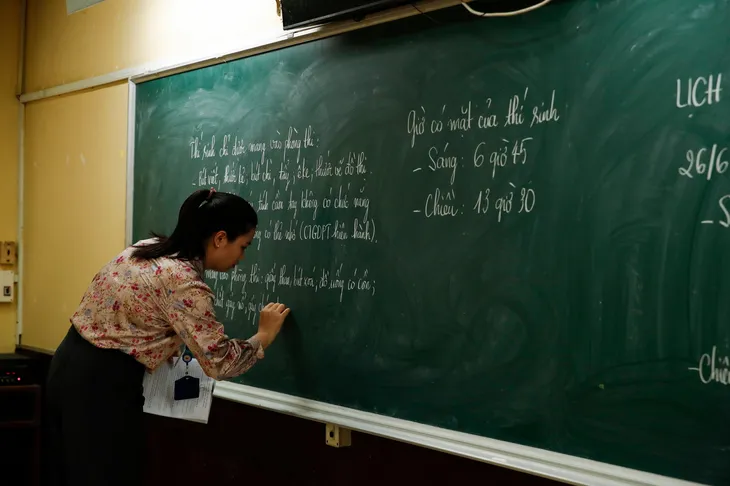 Thí sinh chỉ được mang vào phòng thi:
- Bút viết, thước kẻ, bút chì, tẩy, êke, thước vẽ đồ thị
tính cầm tay không có chức năng
có thẻ nhớ (CTGDPT hiện hành).
vào phòng thi: giấy than, bút xoá, đồ uống có cồn;
chất gây nổ, gây
Giờ có mặt của thí sinh
- Sáng: 6 giờ 45
- Chiều: 13 giờ 30
LỊCH
26/6
- S
- Chiề